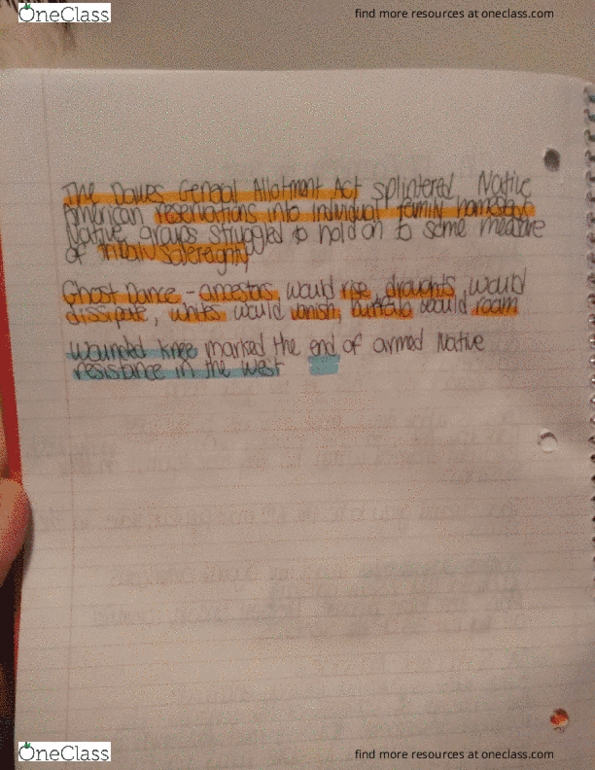 OneClass
find more resources at oneclass.com
The Dawes General Allotment Act splintered Native
American reservations into individual family homesteads
Native groups struggled to hold on to some measure
of tribal sovereignty
Ghost Dance - ancestors would rise, droughts would
dissipate, whites would vanish, buffalo would roam
Wounded Knee marked the end of armed Native
resistance in the west
OneClass
find more resources at oneclass.com